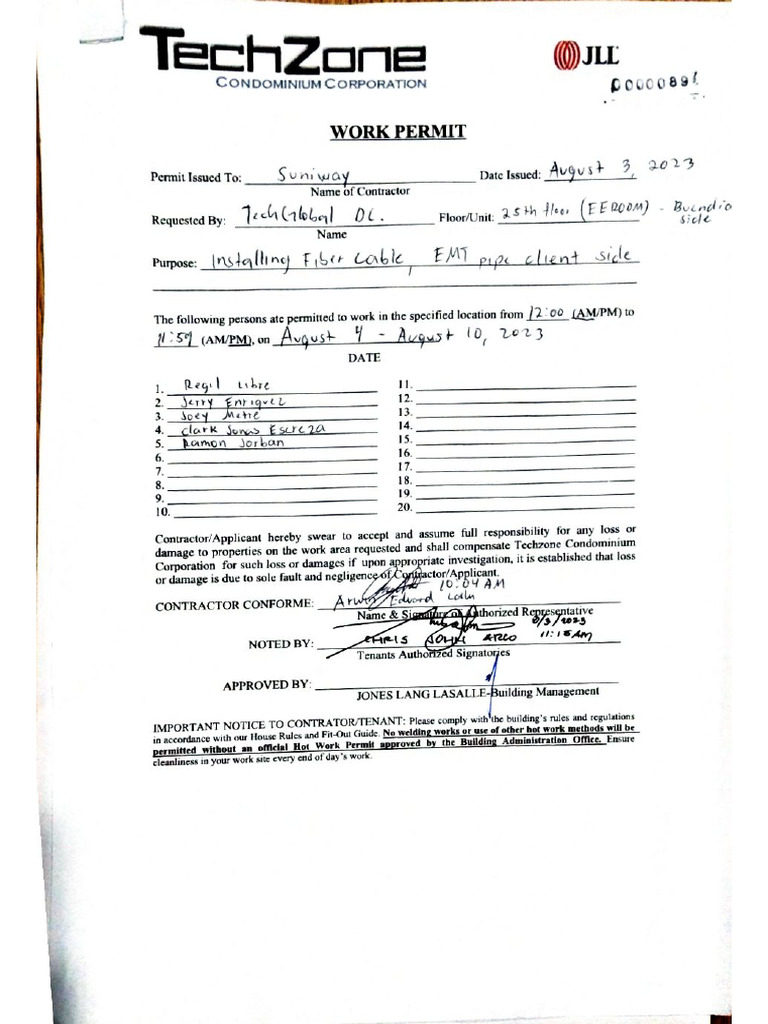 TechZone
CONDOMINIUM CORPORATION
JLL
WORK PERMIT
Permit Issued To: Suniway Date Issued: August 3, 2023
Name of Contractor
Requested By: TechGlobal DC. Floor/Unit: 25th floor (EEROOM) - Buendia side
Name
Purpose: Installing Fiber Cable, EMT pipe client side
The following persons ate permitted to work in the specified location from 12:00 (AM/PM) to
11:59 (AM/PM), on August 4 - August 10, 2023
DATE
1. Regil Libre
2. Jerry Enriquez
3. Joey
4. Clark Jonas
5. Ramon Jorban
6.
7.
8.
9.
10.
11.
12.
13.
14.
15.
16.
17.
18.
19.
20.
Contractor/Applicant hereby swear to accept and assume full responsibility for any loss or
damage to properties on the work area requested and shall compensate Techzone Condominium
Corporation for such loss or damages if upon appropriate investigation, it is established that loss
or damage is due to sole fault and negligence of Contractor/Applicant.
10:04 AM
CONTRACTOR CONFORME: Edward
Name & Signature of Authorized Representative
8/3/2023
NOTED BY: CHRIS JOHN ARCO 11:15 AM
Tenants Authorized Signatories
APPROVED BY:
JONES LANG LASALLE-Building Management
IMPORTANT NOTICE TO CONTRATOR/TENANT: Please comply with the building's rules and regulations
in accordance with our House Rules and Fit-Out Guide. No welding works or use of other hot work methods will be
permitted without an official Hot Work Permit approved by the Building Administration Office. Ensure
cleanliness in your work site every end of day's work.